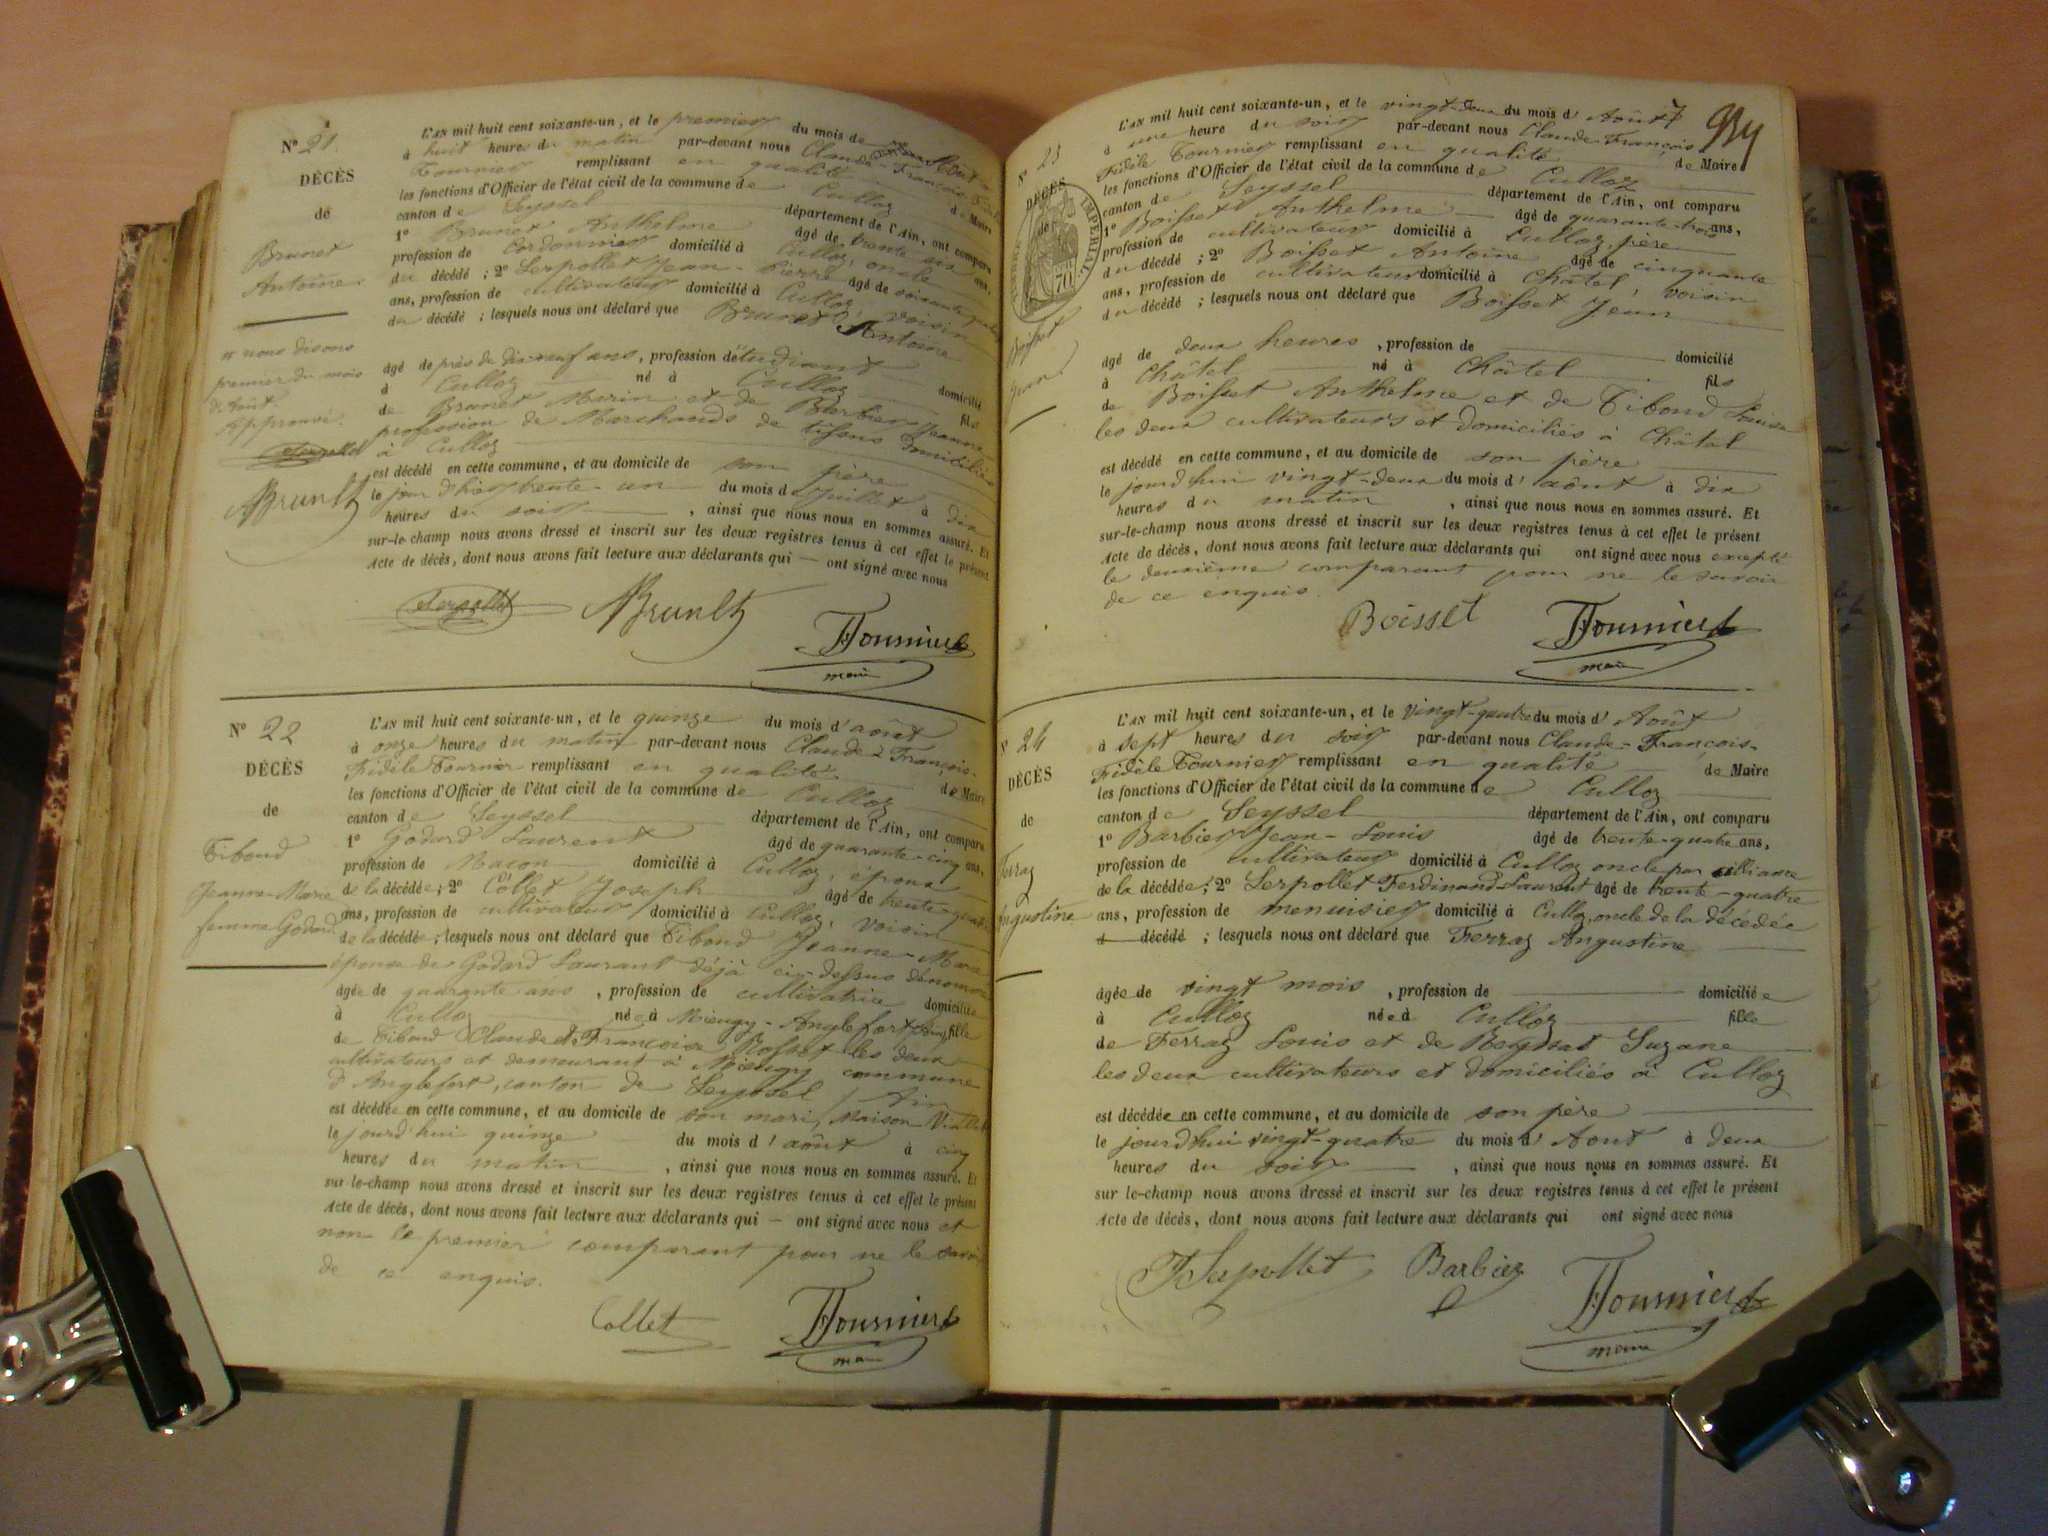 Nº 21.
DÉCÈS
de
Brunet
Antoine.
nous disons
premier du mois
d'Août
Approuvé.
Serpollet
ABrunet
L'AN mil huit cent soixante-un, et le premier du mois de
à huit heures du matin par-devant nous Claude-François
Fournier remplissant en qualité de Maire
les fonctions d'Officier de l'état civil de la commune de Culloz
canton de Seyssel département de l'Ain, ont comparu
1º Brunet Anthelme âgé de trente six ans,
profession de Cordonnier domicilié à Culloz, oncle
du décédé ; 2º Serpollet Jean-Pierre âgé de soixante
ans, profession de cultivateur domicilié à Culloz, voisin
du décédé ; lesquels nous ont déclaré que Brunet Antoine
âgé de près de dix neuf ans, profession d'étudiant domicilié
à Culloz né à Culloz fils
de Brunet Marin et de Barbier Jeanne
profession de Marchands de tissus domiciliés
à Culloz
est décédé en cette commune, et au domicile de son père
le jour d'hier trente-un du mois de Juillet à dix
heures du soir , ainsi que nous nous en sommes assuré. Et
sur-le-champ nous avons dressé et inscrit sur les deux registres tenus à cet effet le présent
Acte de décès, dont nous avons fait lecture aux déclarants qui — ont signé avec nous
Serpollet ABrunet Fournier
maire
Nº 22
DÉCÈS
de
Tibond
Jeanne-Marie
femme Godard
L'AN mil huit cent soixante-un, et le quinze du mois d'août
à onze heures du matin par-devant nous Claude-François-
Fidèle Fournier remplissant en qualité de Maire
les fonctions d'Officier de l'état civil de la commune de Culloz
canton de Seyssel département de l'Ain, ont comparu
1º Godard Laurent âgé de quarante-cinq ans,
profession de Maçon domicilié à Culloz, époux
de la décédée ; 2º Collet Joseph âgé de trente-quatre
ans, profession de cultivateur domicilié à Culloz, voisin
de la décédée ; lesquels nous ont déclaré que Tibond Jeanne-Marie
épouse de Godard Laurant déjà ci-dessus dénommé
âgée de quarante ans , profession de cultivatrice domiciliée
à Culloz née à Mieugy-Anglefort (Ain) fille
de Tibond Claude et Françoise Rosset les deux
cultivateurs et demeurant à Mieugy commune
d'Anglefort, canton de Seyssel / Ain
est décédée en cette commune, et au domicile de son mari, maison
le jourd'hui quinze du mois d'août à cinq
heures du matin , ainsi que nous nous en sommes assuré. Et
sur-le-champ nous avons dressé et inscrit sur les deux registres tenus à cet effet le présent
Acte de décès, dont nous avons fait lecture aux déclarants qui — ont signé avec nous et
non le premier comparant pour ne le savoir
de ce enquis.
Collet Fournier
maire
934
Nº 23
DÉCÈS
de
TIMBRE IMPÉRIAL
70
Boisset
Jean
L'AN mil huit cent soixante-un, et le vingt-deux du mois d'Août
à une heure du soir par-devant nous Claude-François
Fidèle Fournier remplissant en qualité de Maire
les fonctions d'Officier de l'état civil de la commune de Culloz
canton de Seyssel département de l'Ain, ont comparu
1º Boisset Anthelme âgé de quarante-trois ans,
profession de cultivateur domicilié à Culloz, père
du décédé ; 2º Boisset Antoine âgé de cinquante
ans, profession de cultivateur domicilié à Châtel, voisin
du décédé ; lesquels nous ont déclaré que Boisset Jean
âgé de deux heures , profession de domicilié
à Châtel né à Châtel fils
de Boisset Anthelme et de Tibond Louise
les deux cultivateurs et domiciliés à Châtel
est décédé en cette commune, et au domicile de son père
le jourd'hui vingt-deux du mois d'août à dix
heures du matin , ainsi que nous nous en sommes assuré. Et
sur-le-champ nous avons dressé et inscrit sur les deux registres tenus à cet effet le présent
Acte de décès, dont nous avons fait lecture aux déclarants qui ont signé avec nous excepté
le deuxième comparant pour ne le savoir
de ce enquis.
Boisset Fournier
maire
Nº 24
DÉCÈS
de
Augustine
L'AN mil huit cent soixante-un, et le vingt-quatre du mois d'Août
à sept heures du soir par-devant nous Claude-François-
Fidèle Fournier remplissant en qualité de Maire
les fonctions d'Officier de l'état civil de la commune de Culloz
canton de Seyssel département de l'Ain, ont comparu
1º Barbier Jean-Louis âgé de trente-quatre ans,
profession de cultivateur domicilié à Culloz oncle par alliance
de la décédée ; 2º Serpollet Ferdinand-Laurent âgé de trente-quatre
ans, profession de menuisier domicilié à Culloz, oncle de la décédée
décédé ; lesquels nous ont déclaré que Ferraz Angustine
âgée de vingt mois , profession de domiciliée
à Culloz née à Culloz fille
de Ferraz Louis et de Reydsat Suzane
les deux cultivateurs et domiciliés à Culloz
est décédée en cette commune, et au domicile de son père
le jourd'hui vingt-quatre du mois d'Aout à deux
heures du soir , ainsi que nous nous en sommes assuré. Et
sur le-champ nous avons dressé et inscrit sur les deux registres tenus à cet effet le présent
Acte de décès, dont nous avons fait lecture aux déclarants qui ont signé avec nous
FSerpollet Barbier Fournier
maire